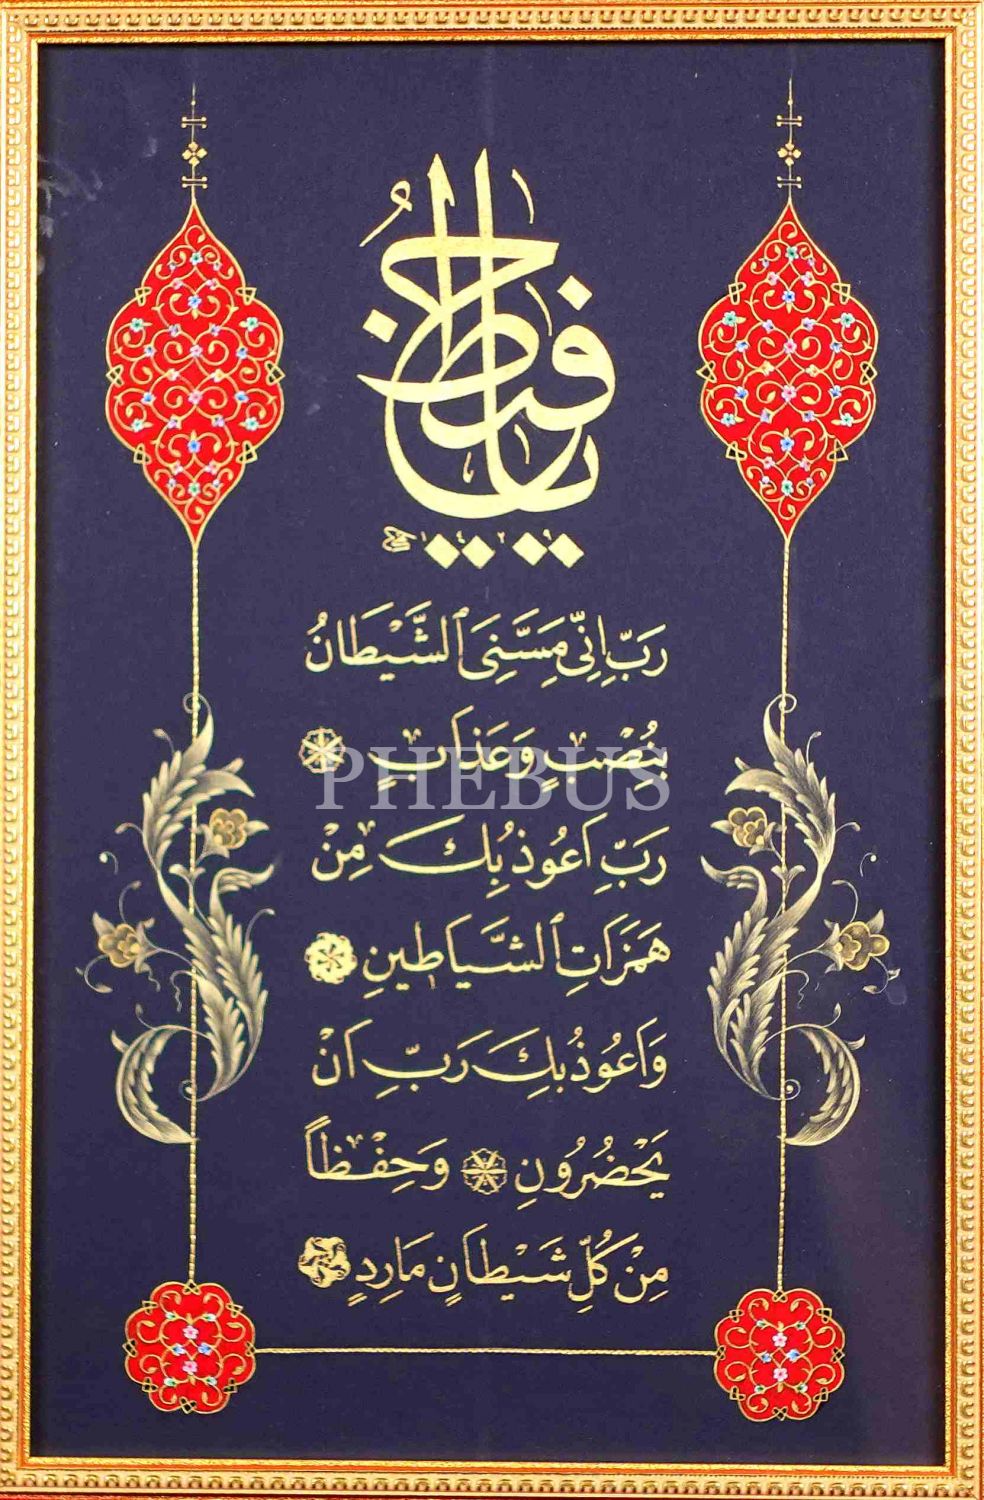 يا حافظ
١٤٢٩
رَبِّ اِنِّى مَسَّنِىَ ٱلشَّيْطَانُ
بِنُصْبٍ وَعَذَابٍ
PHEBUS
رَبِّ اَعُوذُ بِكَ مِنْ
هَمَزَاتِ ٱلشَّيَاطِينِ
وَاَعُوذُ بِكَ رَبِّ اَنْ
يَحْضُرُونِ وَحِفْظاً
مِنْ كُلِّ شَيْطَانٍ مَارِدٍ